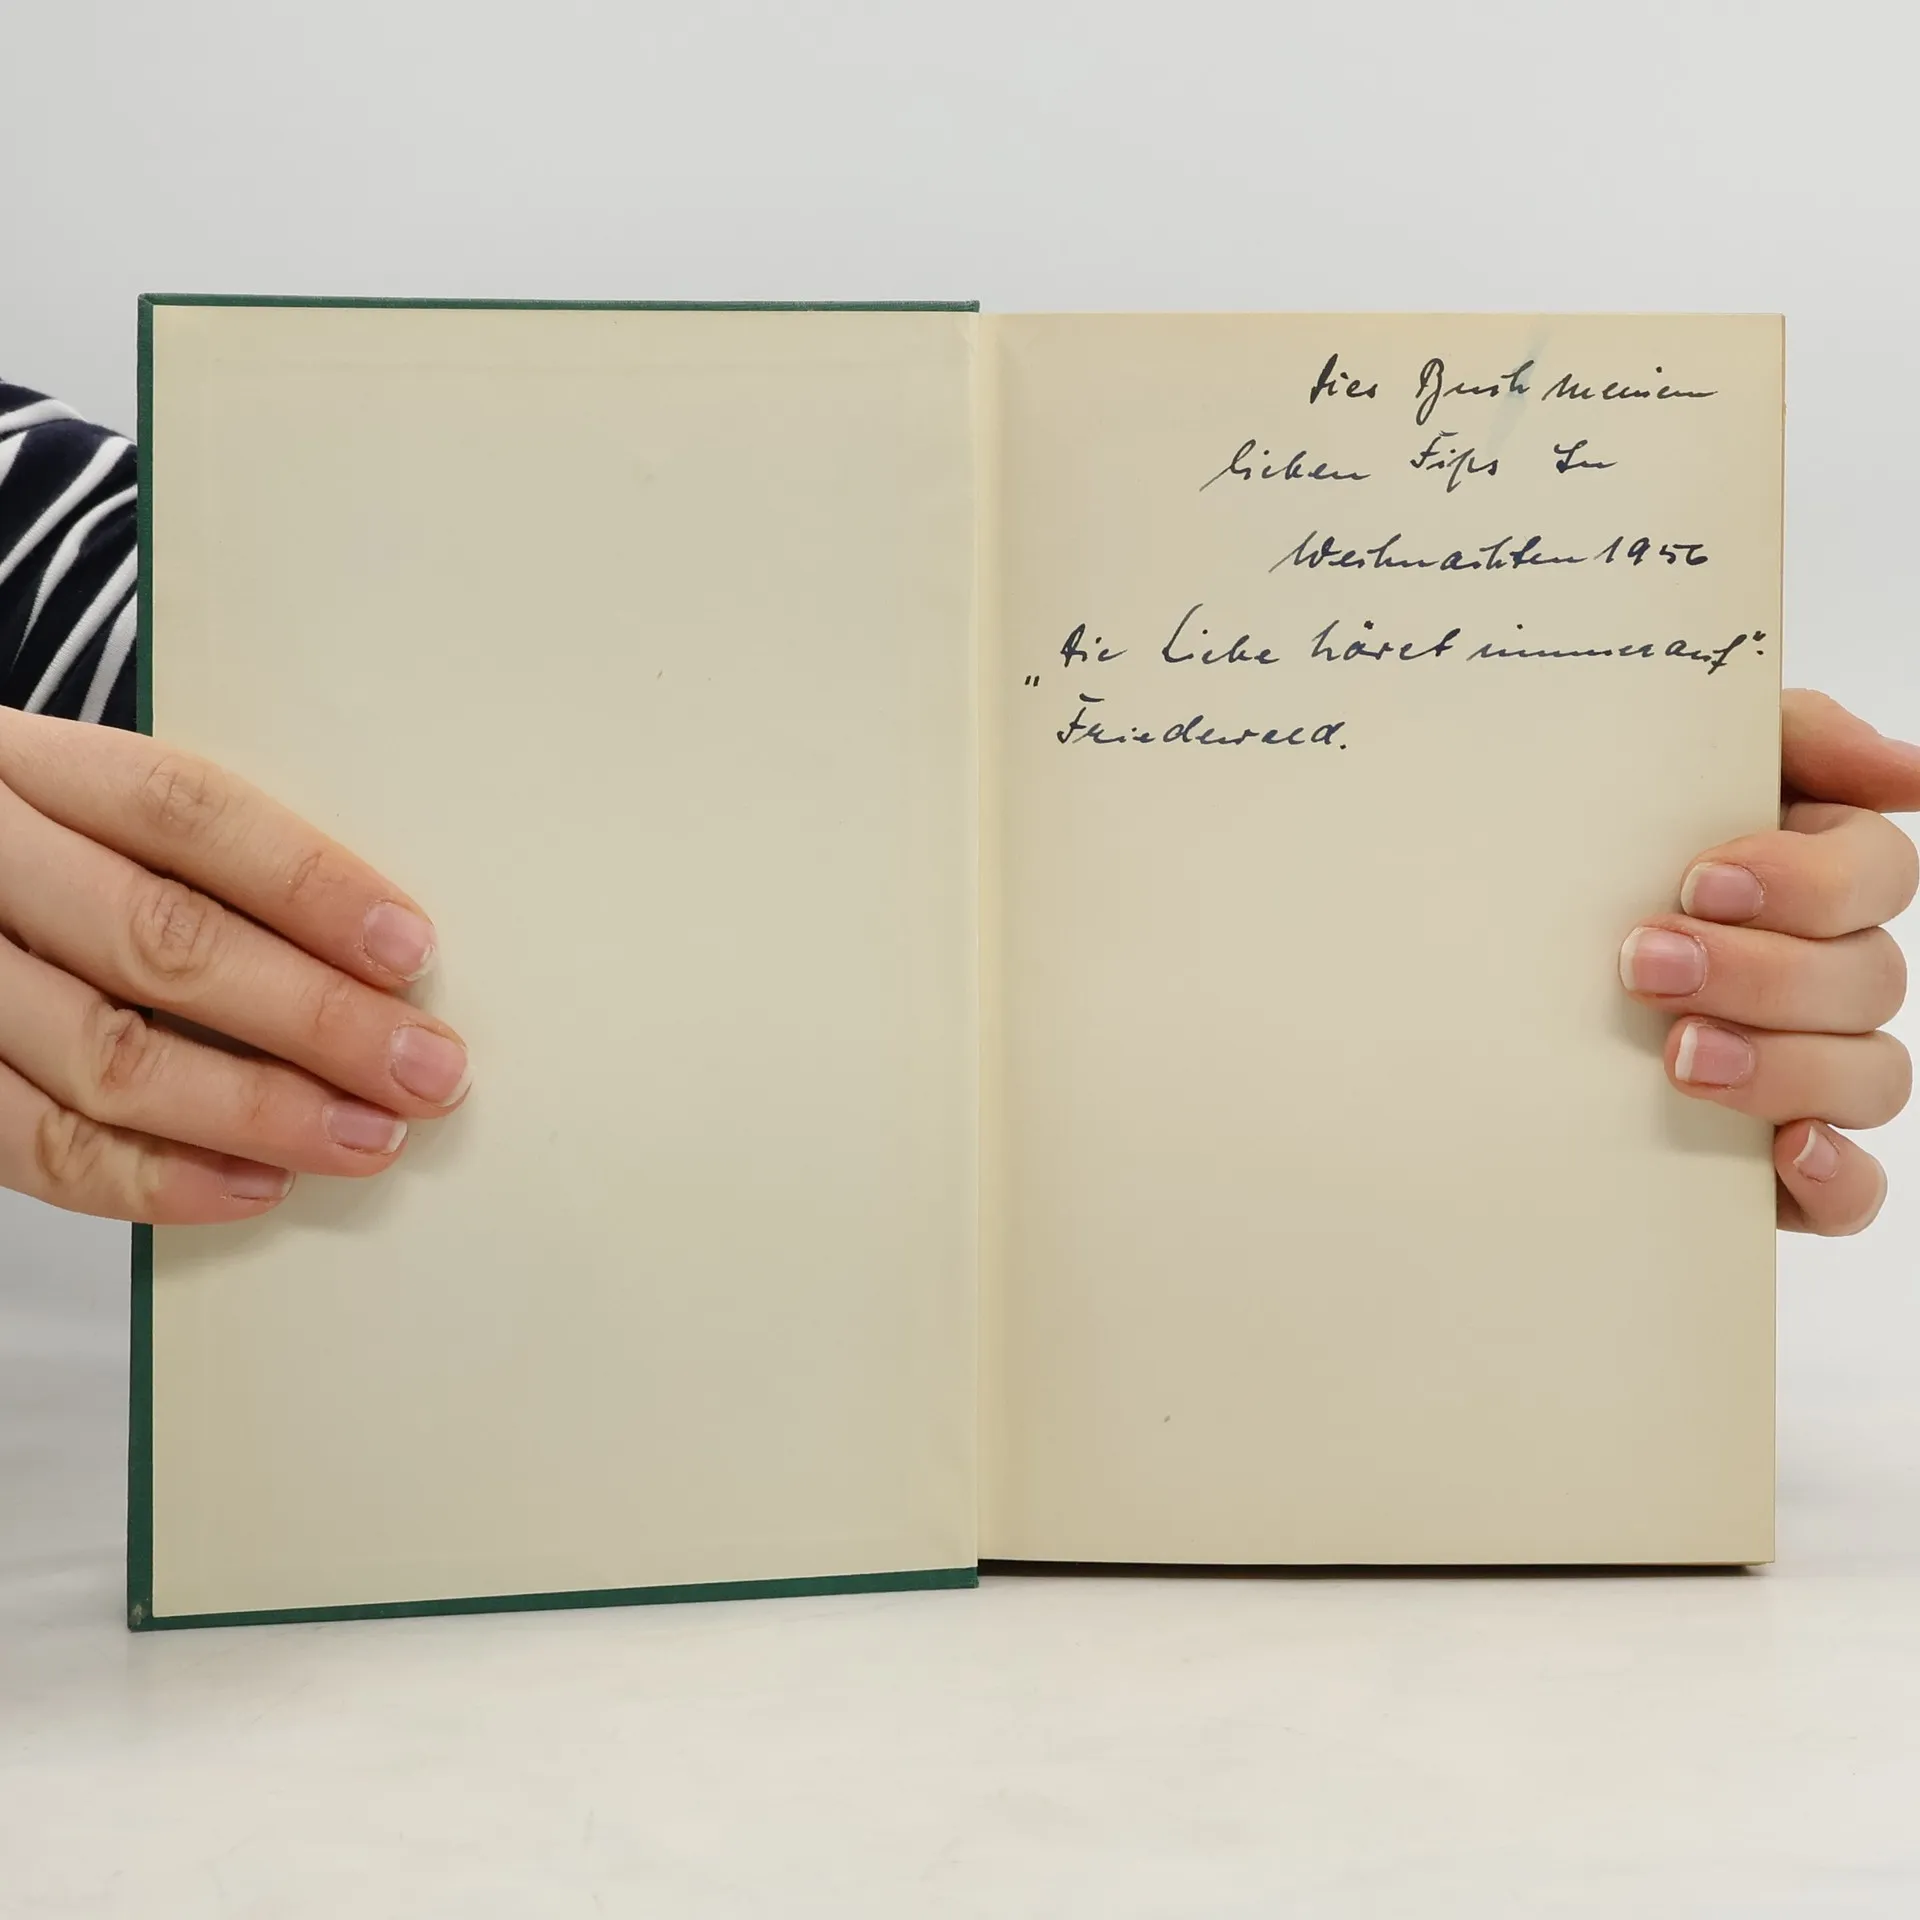 Dies Buch meinem
lieben Fips zu
Weihnachten 1956
„Die Liebe höret nimmer auf“.
Friedewald.